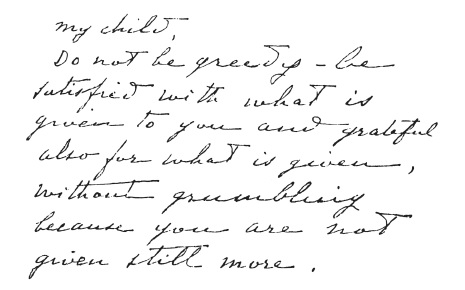 my child,
Do not be greedy - be
satisfied with what is
given to you and grateful
also for what is given,
without grumbling
because you are not
given still more.